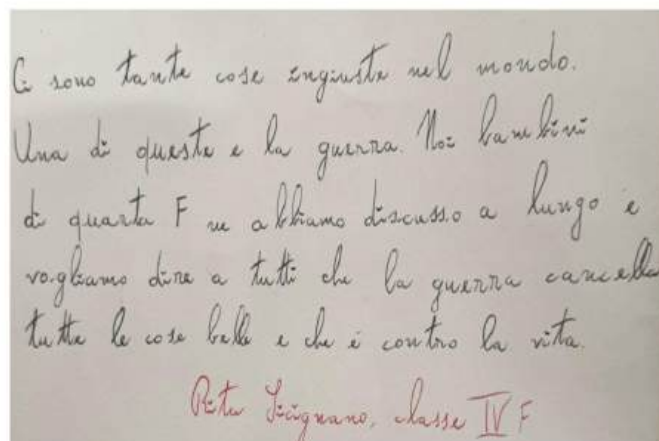 Ci sono tante cose ingiuste nel mondo.
Una di queste e la guerra. Noi bambini
di quarta F ne abbiamo discusso a lungo e
vogliamo dire a tutti che la guerra cancella
tutte le cose belle e che è contro la vita.
Rita Sicignano, classe IV F